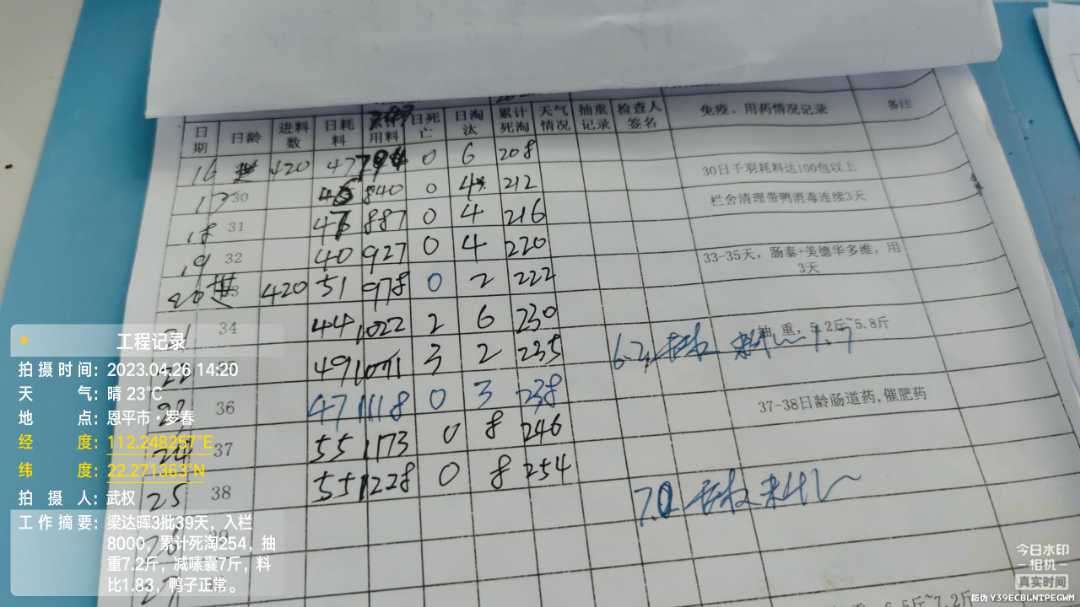 日期 日龄 进料数 日耗料 用料 日死亡 日淘汰 累计死淘 天气情况 抽重记录 检查人签名 免疫、用药情况记录 备注
16 420 47 794 0 6 208 30日千羽耗料达100包以上
17 30 45 840 0 4 212 栏舍清理带鸭消毒连续3天
18 31 47 887 0 4 216
19 32 40 927 0 4 220 33-35天，肠泰+美德华多维，用3天
20 420 51 978 0 2 222
21 34 44 1022 2 6 230 抽重：5.2斤~5.8斤
49 1071 3 2 235
36 47 1118 0 3 238 37-38日龄肠道药,催肥药
24 37 55 1173 0 8 246
25 38 55 1228 0 8 254
26
27
工程记录
拍摄时间：2023.04.26 14:20
天气：晴 23℃
地点：恩平市·罗春
经度：112.248257°E
纬度：22.271363°N
拍摄人：武权
工作摘要：梁达晖3批39天，入栏
8000，累计死淘254，抽
重7.2斤，减嗉囊7斤，料
比1.83，鸭子正常。
今日水印
相机
真实时间
防伪 Y39ECBLNTPEGWM